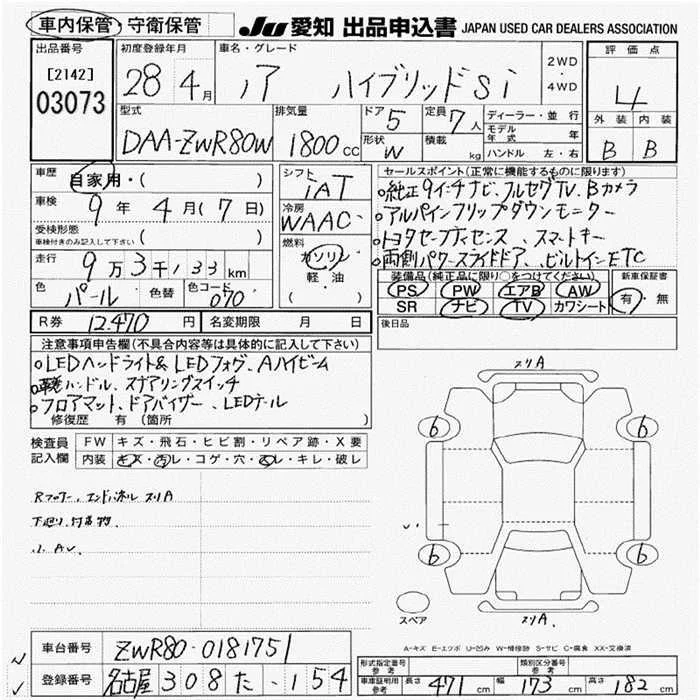 車内保管・守衛保管 JU 愛知 出品申込書 JAPAN USED CAR DEALERS ASSOCIATION
出品番号 初度登録年月 車名・グレード 2WD・4WD 評価点
[2142] 28 4月 ノア ハイブリッドSi 4
03073
型式 排気量 ドア 5 定員 7人 ディーラー・並行 外装 内装
DAA-ZWR80W 1800cc 形状 W 積載 kg モデル年式 年 B B
ハンドル 左・右
車歴 自家用・( ) シフト IAT セールスポイント(正常に機能するものに限ります)
車検 9年 4月(7日) 冷房 WAAC 純正9インチナビ、フルセグTV、Bカメラ
受検形態 車検付きのみ記入して下さい ( ) 燃料 アルパインフリップダウンモニター
走行 9万3千133km ガソリン トヨタセーフティセンス、スマートキー
軽・油 両側パワースライドドア、ビルトインETC
色 パール 色替 色コード 070 ( ) 装備品(純正品に限り○をつけてください) 新車保証書
PS PW エアB AW 有・無
SR ナビ TV カワシート
R券 12,470円 名変期限 月 日 後日品
注意事項申告欄(不具合内容等は具体的に記入して下さい)
LEDヘッドライト& LEDフォグ、Aハイビーム
革巻ハンドル、ステアリングスイッチ
フロアマット、ドアバイザー、LEDテール
修復歴 有(箇所 )
検査員記入欄 FW キズ・飛石・ヒビ割・リペア跡・X要
内装 キズ・汚レ・コゲ・穴・スレ・キレ・破レ
Rフロアー、エンドパネル スリA
下廻り、付着物
小A
スリA
6 6
6 6
スペア スリA
A-キズ E-エクボ U-凹み W-補修跡 S-サビ C-腐食 XX-交換済
車台番号 ZWR80-0181751
登録番号 名古屋 308 た・154
形式指定番号 参考 類別区分番号 参考
車庫証明用 参考 長さ 471cm 幅 173cm 高さ 182cm